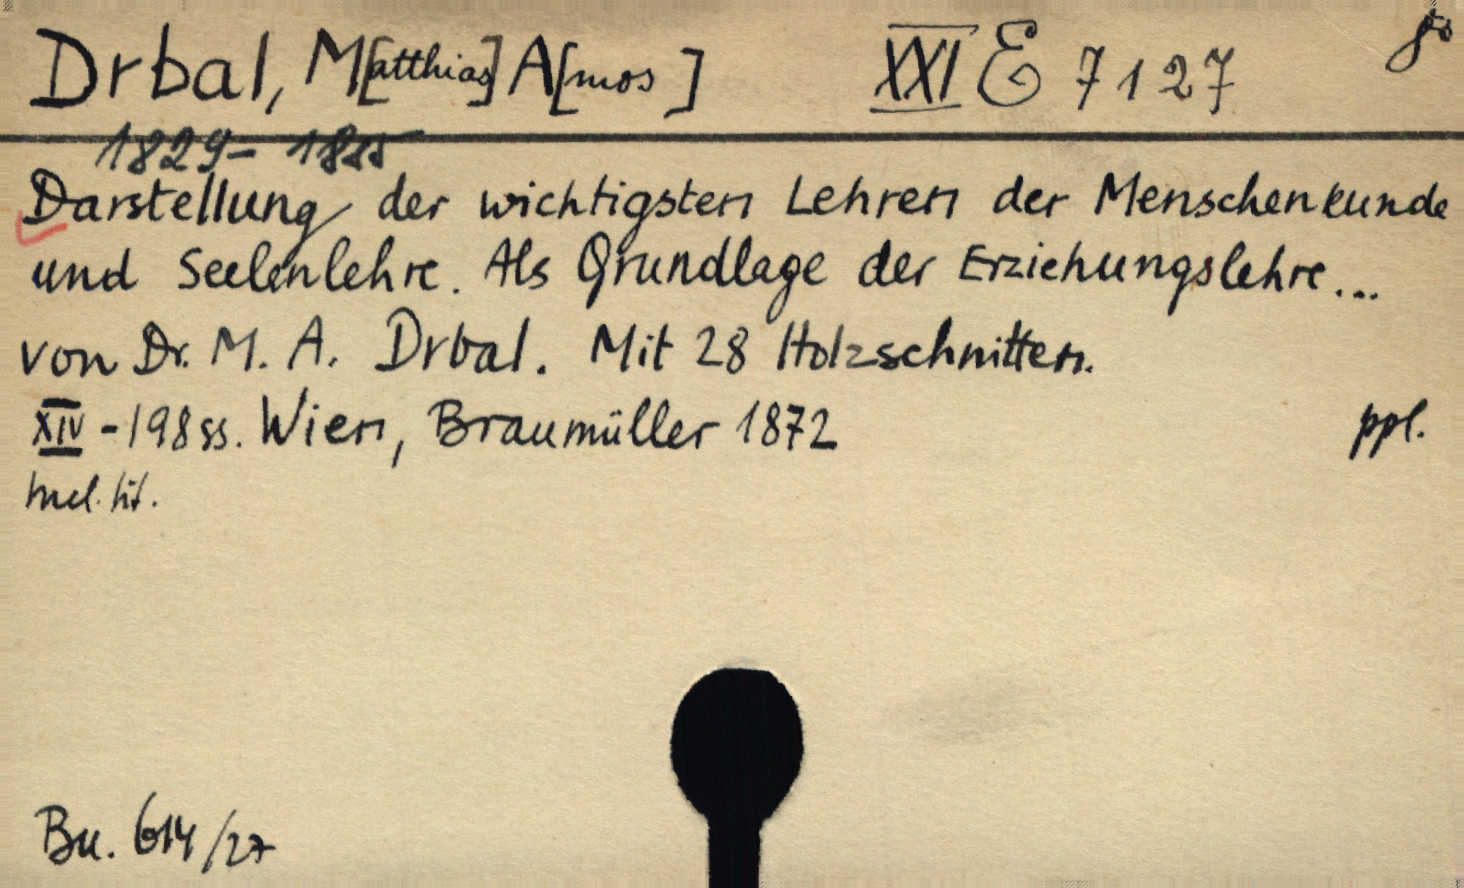 Drbal, M[atthias] A[mos] XXI E 7127
1829-
Darstellung der wichtigsten Lehren der Menschenkunde
und Seelenlehre. Als Grundlage der Erziehungslehre...
von Dr. M. A. Drbal. Mit 28 Holzschnitten.
XIV-198 ss. Wien, Braumüller 1872 ppl.
Bu. 614/27